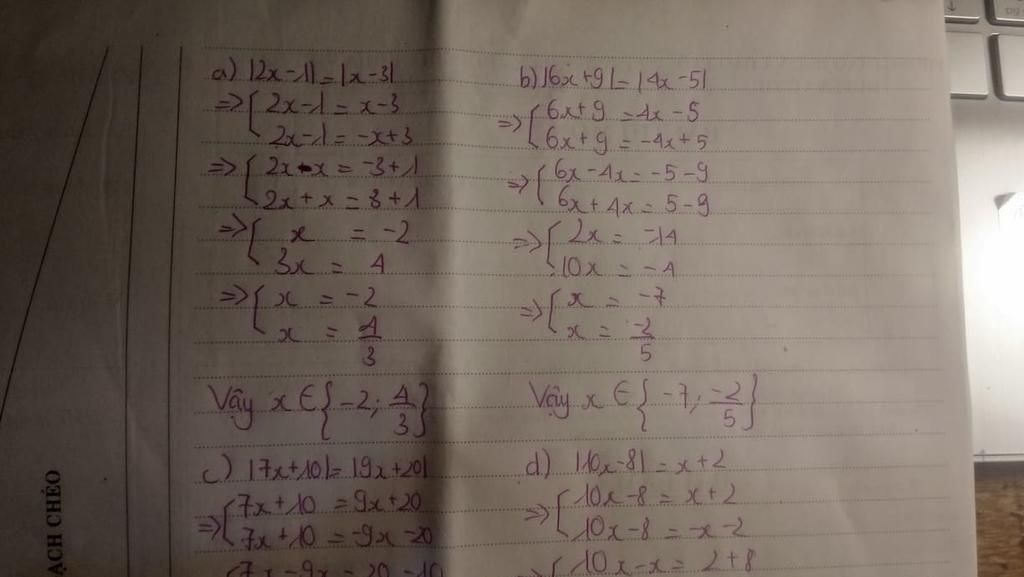 a) |2x-1|=|x-3|
=> { 2x-1 = x-3
2x-1 = -x+3
=> { 2x-x = -3+1
2x+x = 3+1
=> { x = -2
3x = 4
=> { x = -2
x = 4/3
Vậy x ∈ {-2; 4/3}
b) |6x+9|=|4x-5|
=> { 6x+9 = 4x-5
6x+9 = -4x+5
=> { 6x-4x = -5-9
6x+4x = 5-9
=> { 2x = -14
10x = -4
=> { x = -7
x = -2/5
Vậy x ∈ {-7; -2/5}
c) |7x+10|=|9x+20|
=> { 7x+10 = 9x+20
7x+10 = -9x-20
{ 7x-9x = 20-10
d) |10x-8| = x+2
=> { 10x-8 = x+2
10x-8 = -x-2
=> { 10x-x = 2+8
ẠCH CHÉO